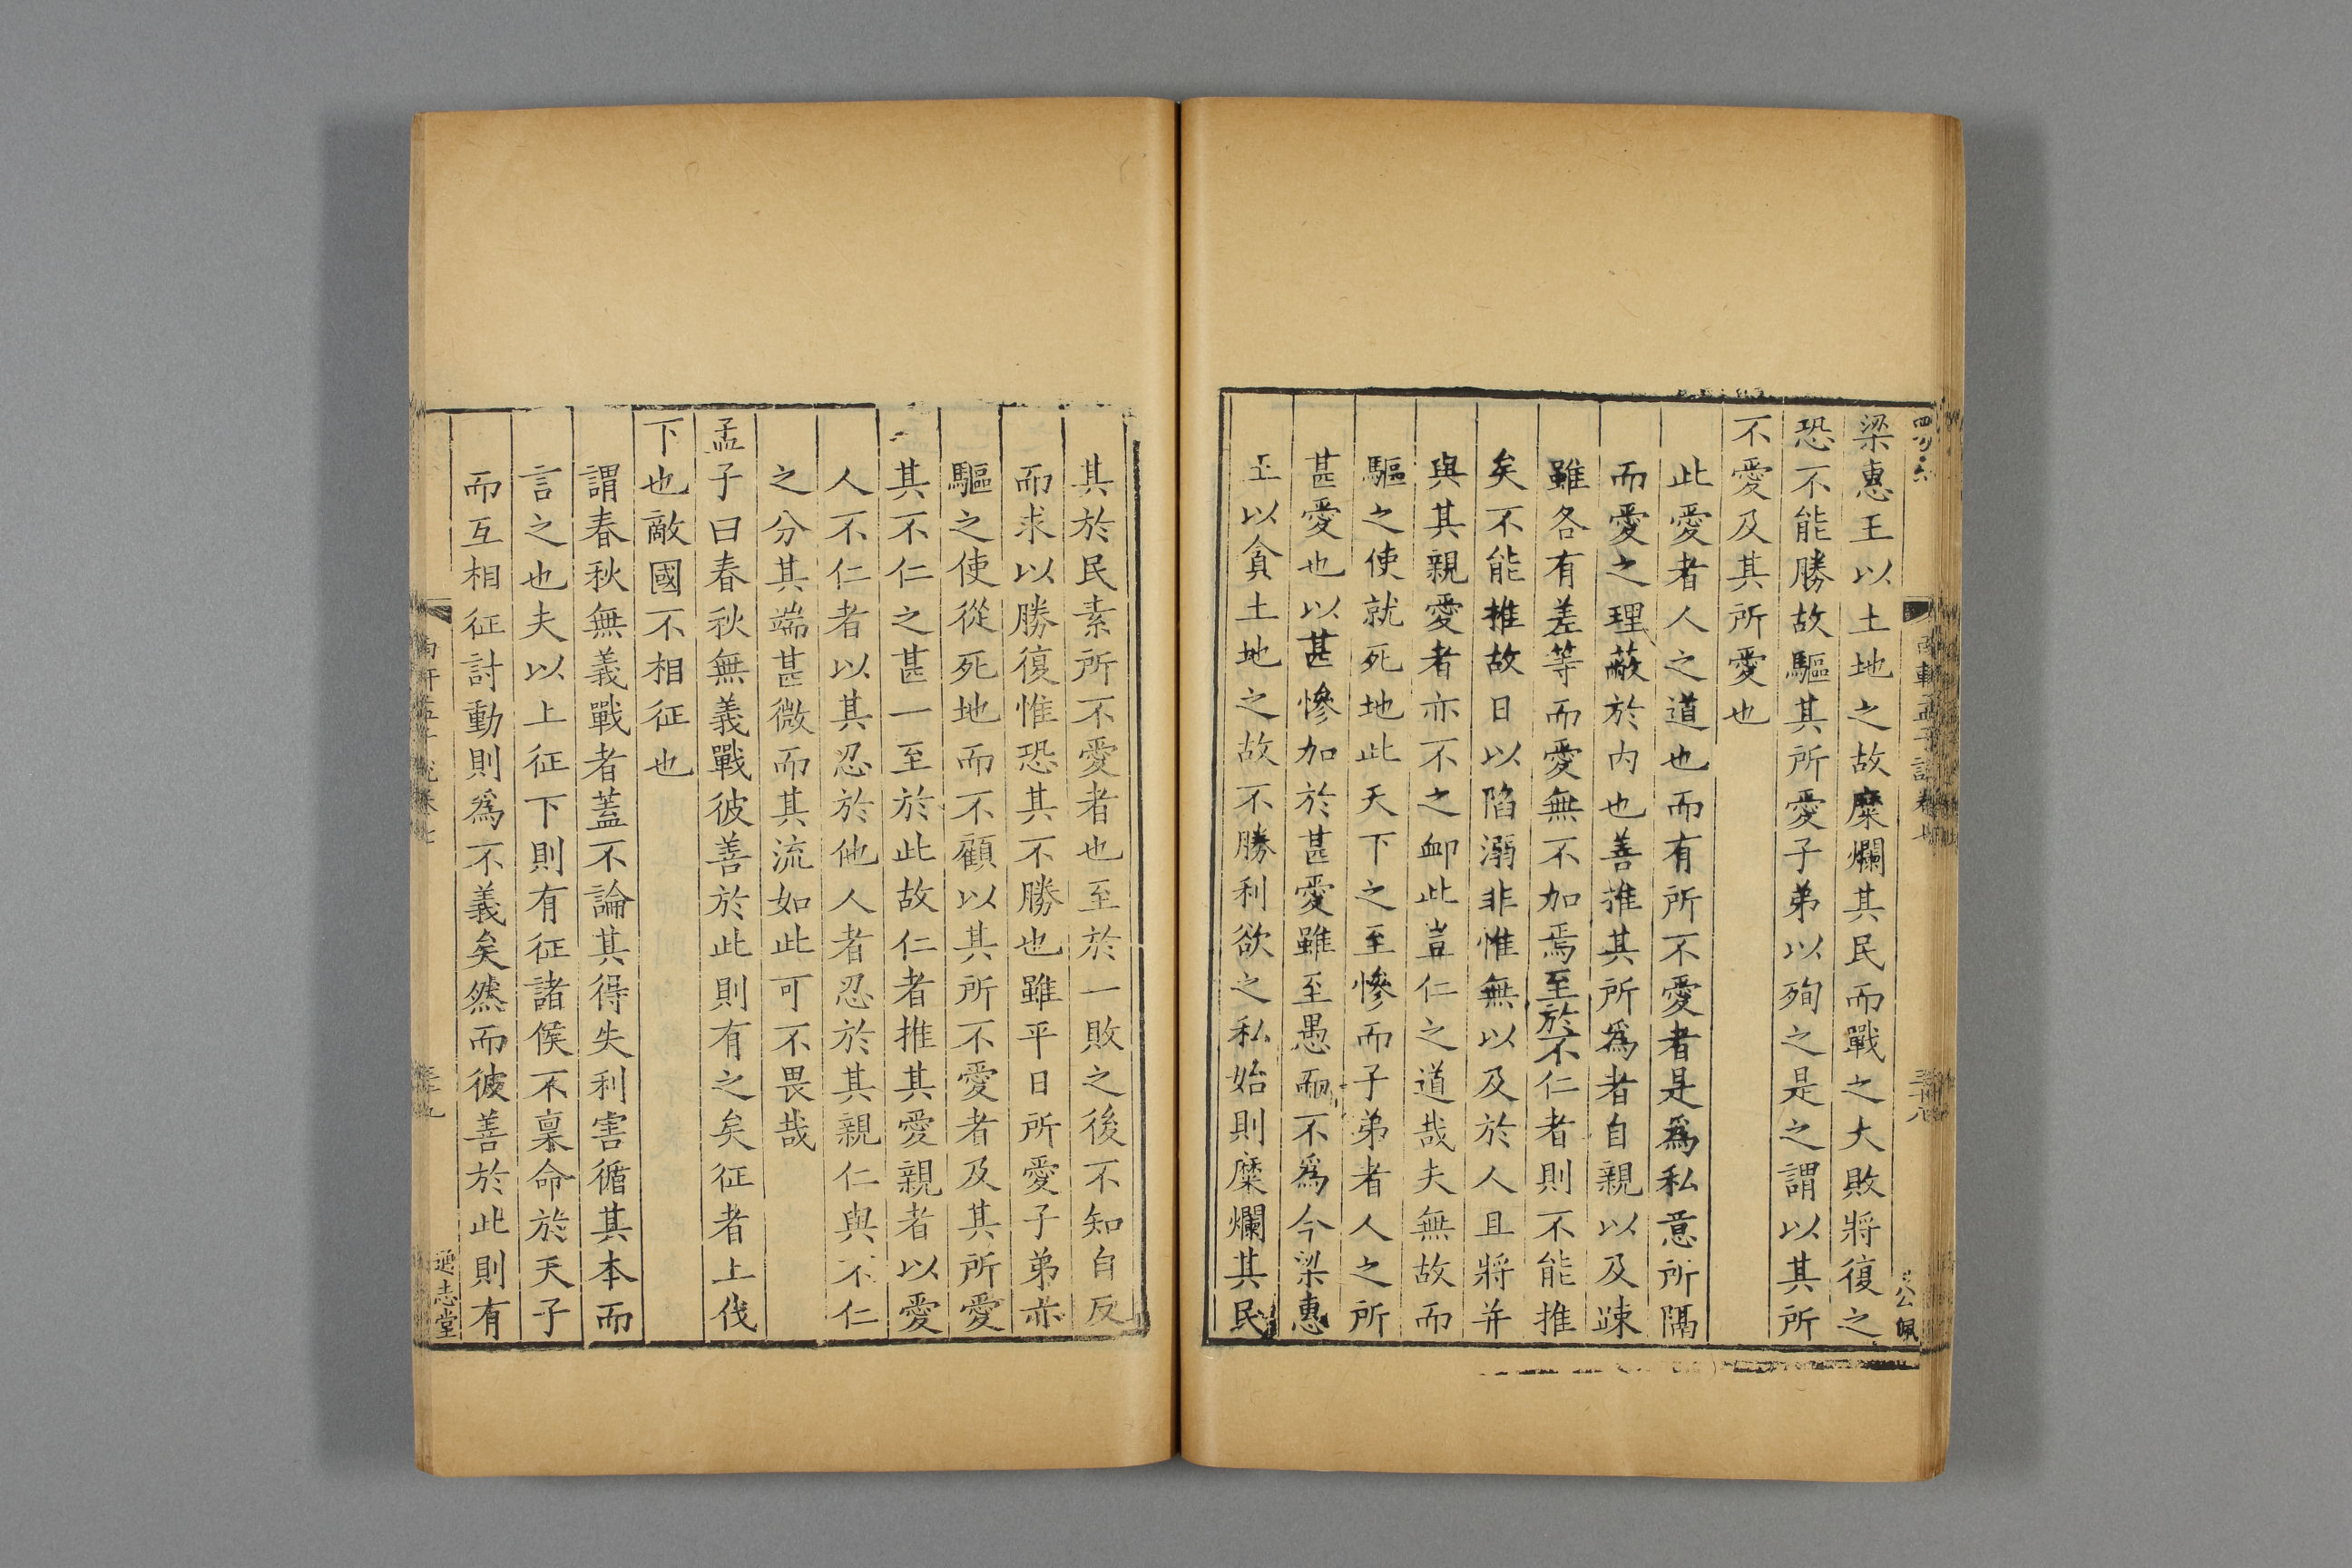 梁惠王以土地之故糜爛其民而戰之大敗將復之
恐不能勝故驅其所愛子弟以殉之是之謂以其所
不愛及其所愛也
此愛者人之道也而有所不愛者是爲私意所隔
而愛之理蔽於内也善推其所爲者自親以及疎
雖各有差等而愛無不加焉至於不仁者則不能推
矣不能推故日以陷溺非惟無以及於人且將并
與其親愛者亦不之卹此豈仁之道哉夫無故而
驅之使就死地此天下之至慘而子弟者人之所
甚愛也以甚慘加於甚愛雖至愚而不爲今梁惠
王以貪土地之故不勝利欲之私始則糜爛其民
其於民素所不愛者也至於一敗之後不知自反
而求以勝復惟恐其不勝也雖平日所愛子弟亦
驅之使從死地而不顧以其所不愛者及其所愛
其不仁之甚一至於此故仁者推其愛親者以愛
人不仁者以其忍於他人者忍於其親仁與不仁
之分其端甚微而其流如此可不畏哉
孟子曰春秋無義戰彼善於此則有之矣征者上伐
下也敵國不相征也
謂春秋無義戰者蓋不論其得失利害循其本而
言之也夫以上征下則有征諸侯不稟命於天子
而互相征討動則爲不義矣然而彼善於此則有
通志堂